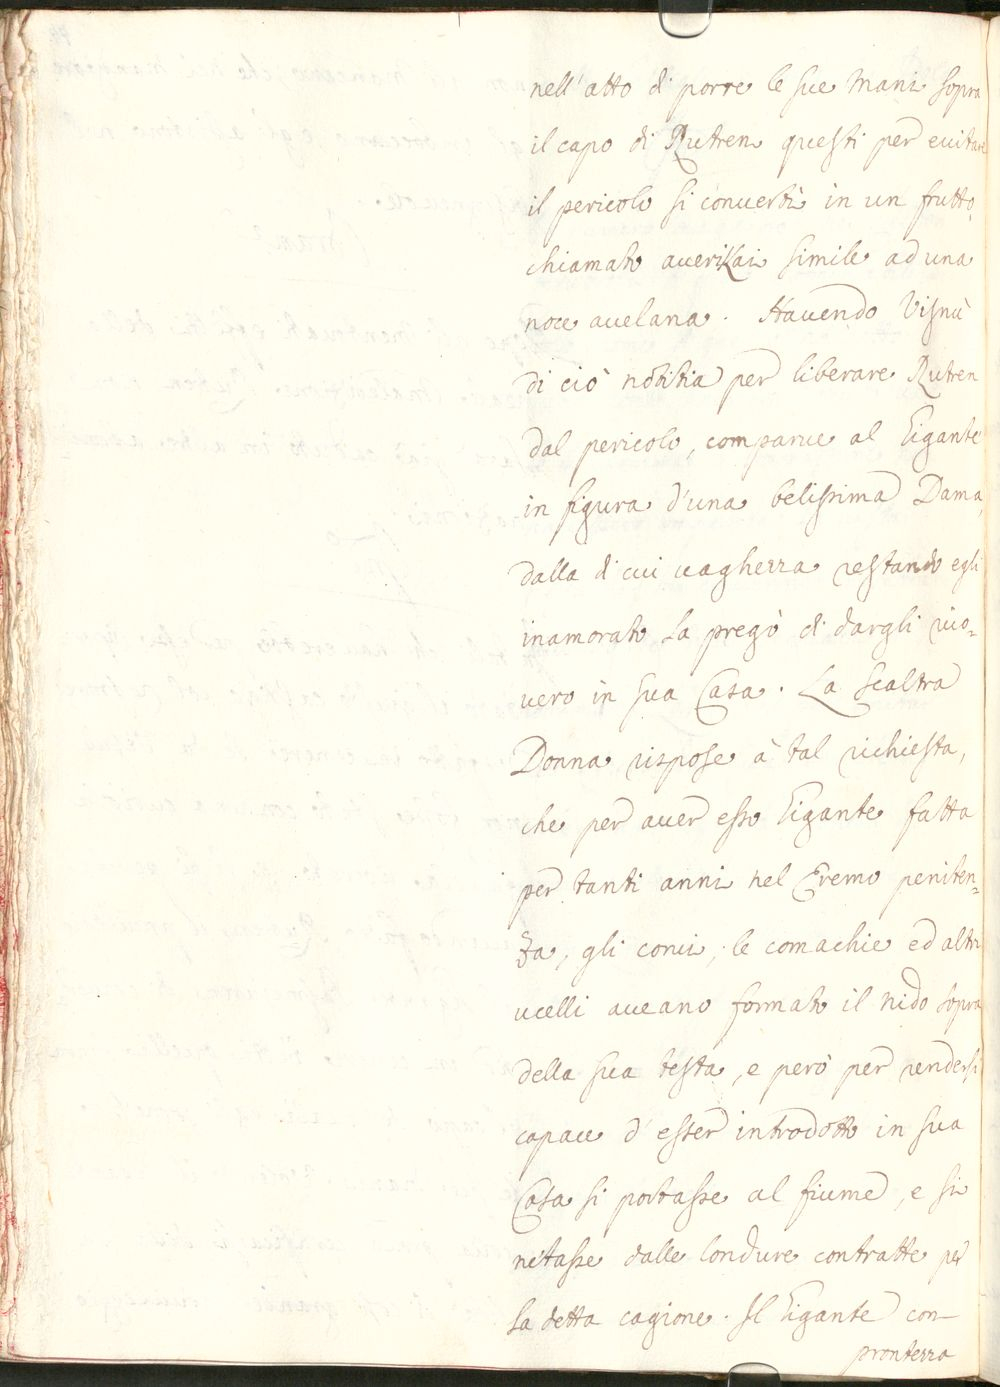 nell'atto di porre le sue mani sopra
il capo di Rutren questi per euitare
il pericolo si conuertì in un frutto
chiamato auerikai simile ad una
noce auelana. Hauendo Visnù
di ciò notitia per liberare Rutren
dal pericolo, comparue al Gigante
in figura d'una belissima Dama,
dalla di cui uaghezza restando egli
inamorato la pregò di dargli rico=
uero in sua Casa. La scaltra
Donna rispose à tal richiesta,
che per auer esso Gigante fatta
per tanti anni nel Eremo peniten=
za, gli corui, le cornachie ed altri
ucelli aueano formato il nido sopra
della sua testa, e però per rendersi
capace d'esser introdotto in sua
Casa si portasse al fiume, e si
netasse dalle lordure contratte per
la detta cagione. Il Gigante con-
prontezza